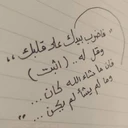 " فاضرب بيدك على قلبك
وقل له .. ( اثبت )
فإن ما شاء الله كان ...
وما لم يشأ لم يكن ... "